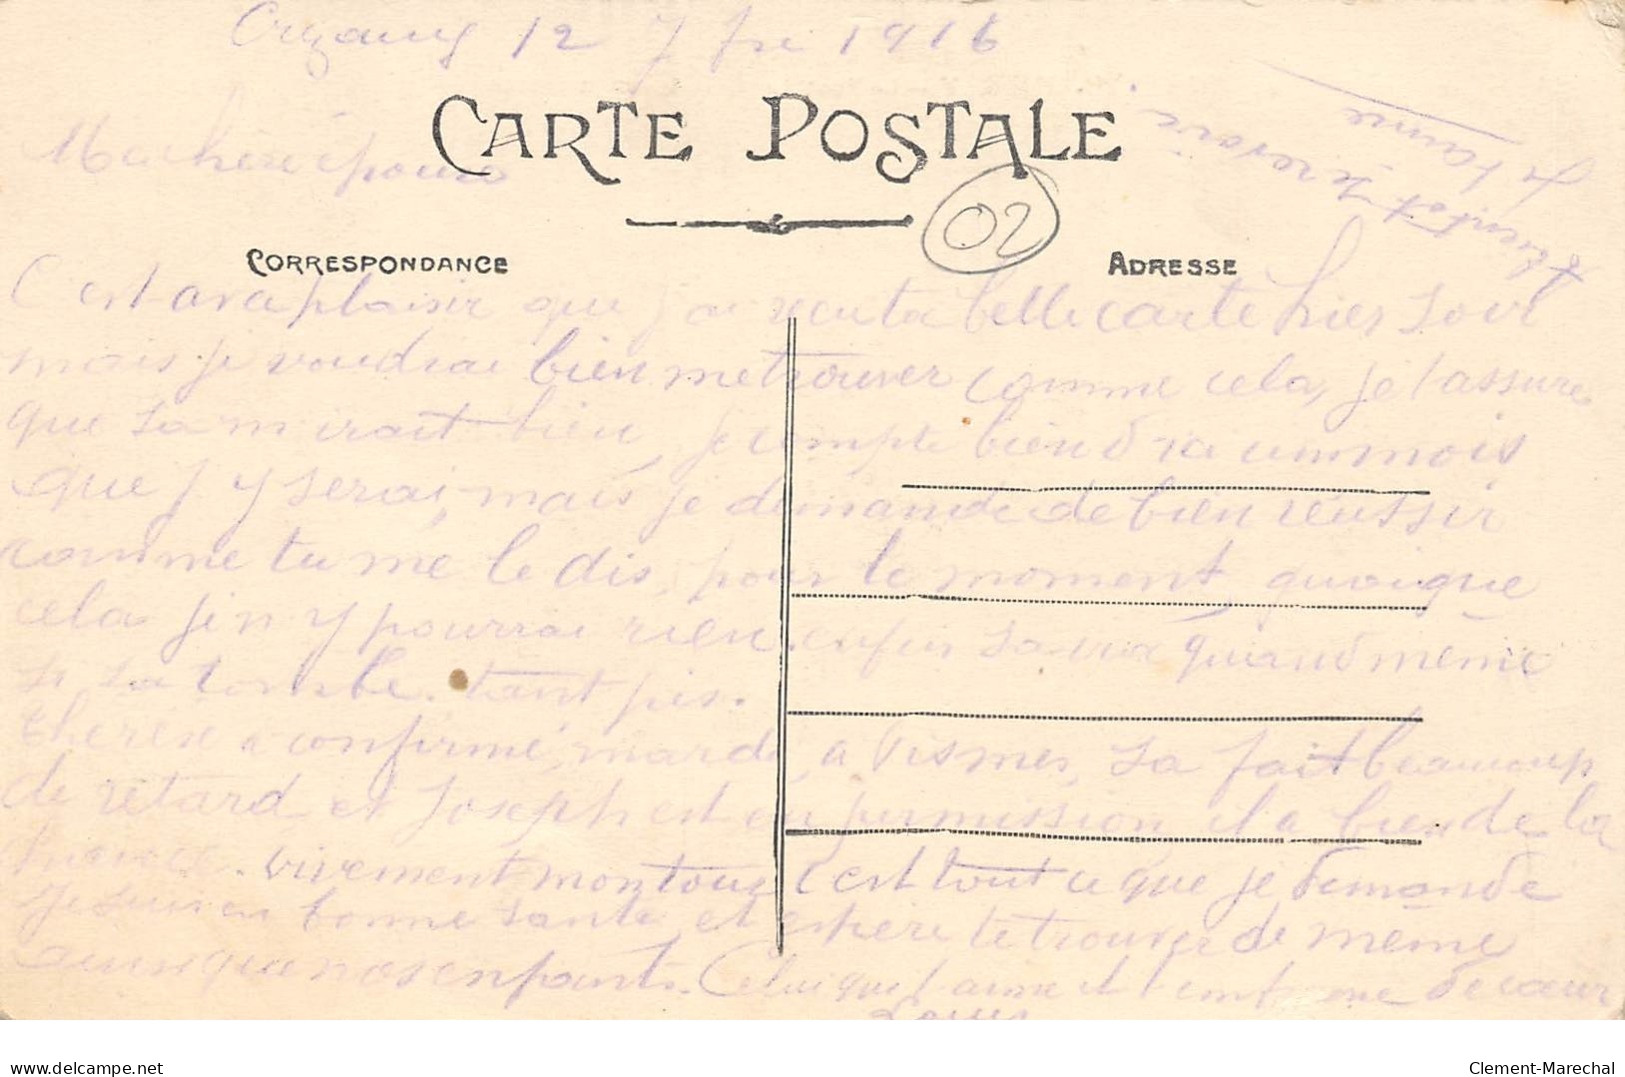 12 7bre 1916
CARTE POSTALE
02
CORRESPONDANCE
ADRESSE
Ma chère épouse
C'est avec plaisir que j'ai recu ta belle carte hier soir
mais je voudrai bien me trouver comme cela, je t'assure
que sa m irait bien, je compte bien dra un mois
que j y serai, mais je demande de bien réussir
comme tu me le dis, pour le moment, quoique
cela je n y pourrai rien. enfin sa vira quand même
si sa tombe. tant pis.
Therese a confirmé, mardi, a Fismes, sa fait beaucoup
de retard et Joseph est en permission il a bien de la
chance. vivement mon tour c'est tout ce que je demande
Je suis en bonne santé, et espère te trouver de même
ainsi que nos enfants. Celui qui t'aime et t'embrasse de coeur
Louis
A bientot de revoir.
Je t'aime
delcampe.net
Clement-Marechal